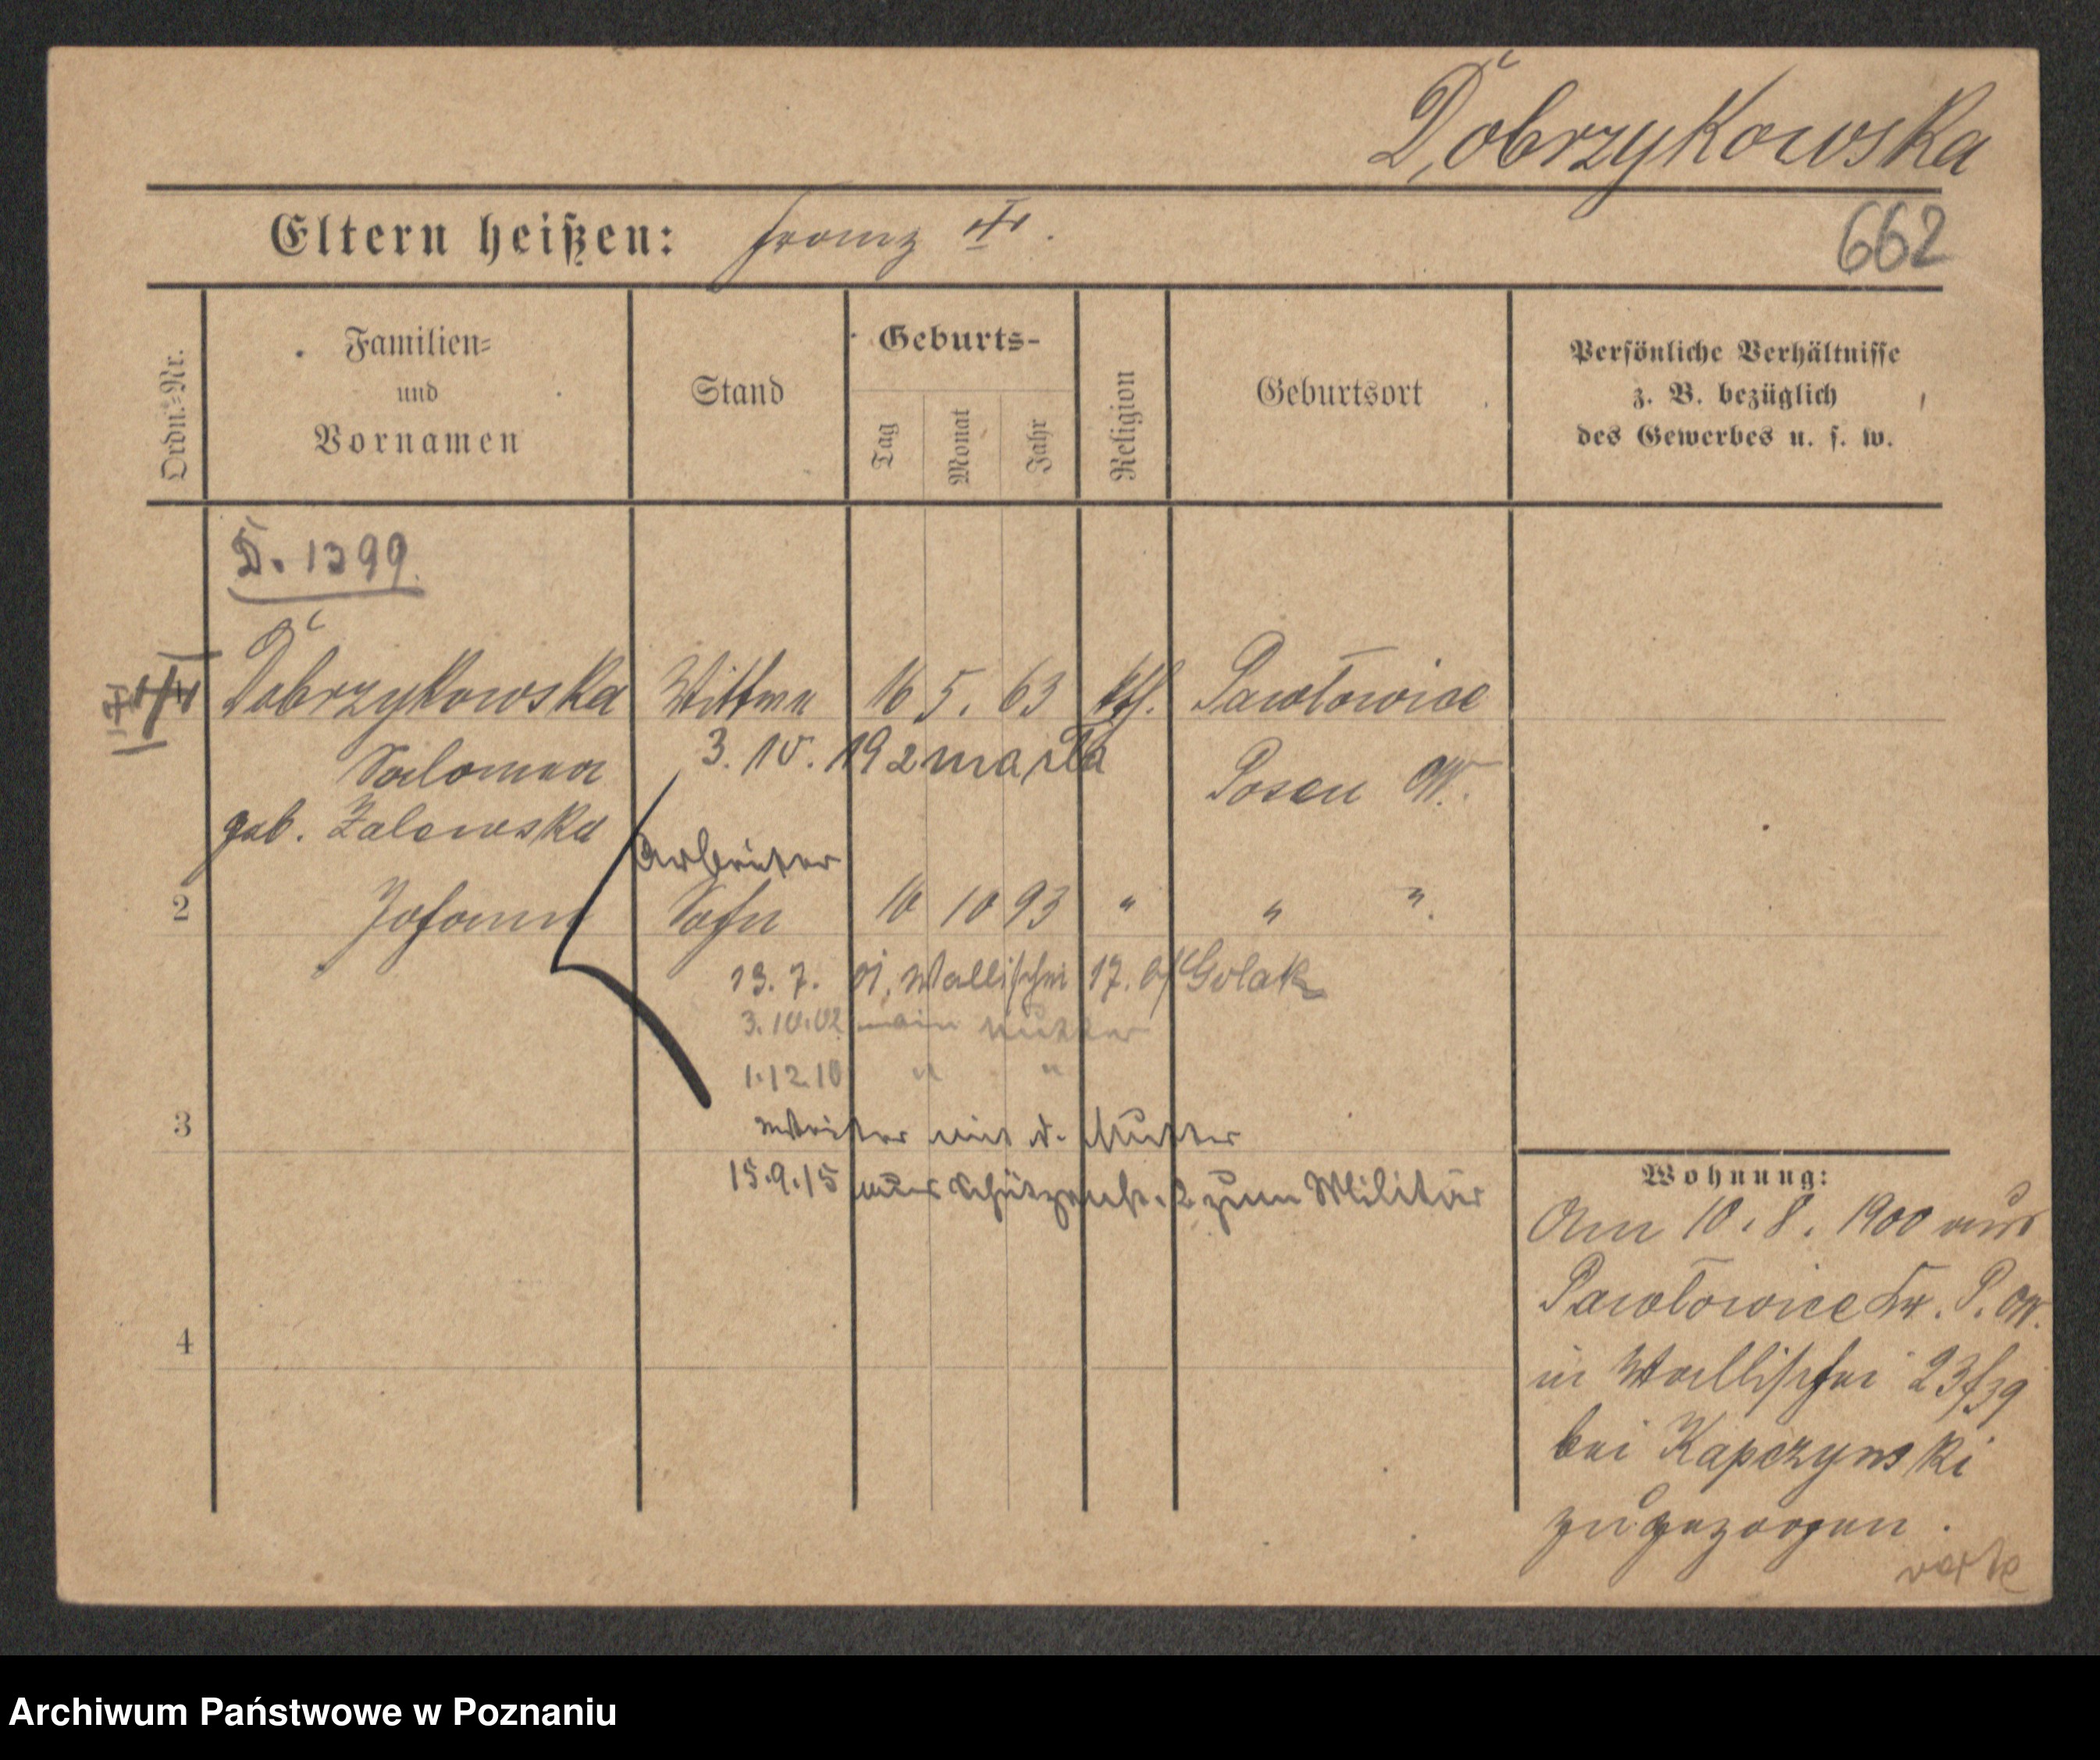 Dobrzykowska
Eltern heißen: Franz †.
662
Ordn.=Nr.
Familien=
und
Vornamen
Stand
Geburts-
Tag
Monat
Jahr
Religion
Geburtsort
Persönliche Verhältnisse
z. B. bezüglich
des Gewerbes u. s. w.
D. 1399.
Dobrzykowska Wittwe 16 5. 63 kth. Pawłowice
Salomea 3. 10. 192 Posen W.
geb. Zalewska
Arbeiter
2 Johann Sohn 10 10 93 " " ".
13. 7. 01. Wallischei 17. b/ Golak
3.10.02 Mutter
1.12.10 " "
3 weiter mit d. Mutter
15.9.15 aus Schützenstr. 2 zum Militär
4
Wohnung:
Am 10. 8. 1900 aus
Pawłowice Kr. P. W.
in Wallischei 23
bei Kapczynski
zugezogen.
Archiwum Państwowe w Poznaniu